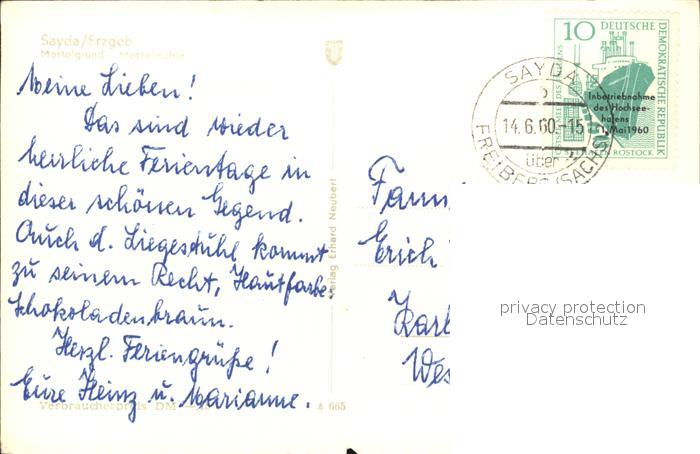 Sayda/Erzgeb
Mortelgrund Mortelmühle
Meine Lieben!
Das sind wieder
herrliche Ferientage in
dieser schönen Gegend.
Auch d. Liegestuhl kommt
zu seinem Recht, Hautfarbe
schokoladenbraun.
Herzl. Feriengrüße!
Eure Heinz u. Marianne.
Verbraucherpreis DM
A 665
Verlag Erhard Neubert
10 DEUTSCHE
DEMOKRATISCHE REPUBLIK
Inbetriebnahme
des Hochsee-
hafens
1. Mai 1960
ROSTOCK
SAYDA
b
14.6.60.-15
über
FREIBERG (SACHS
Fam
Erich
Karl
Wes
privacy protection
Datenschutz